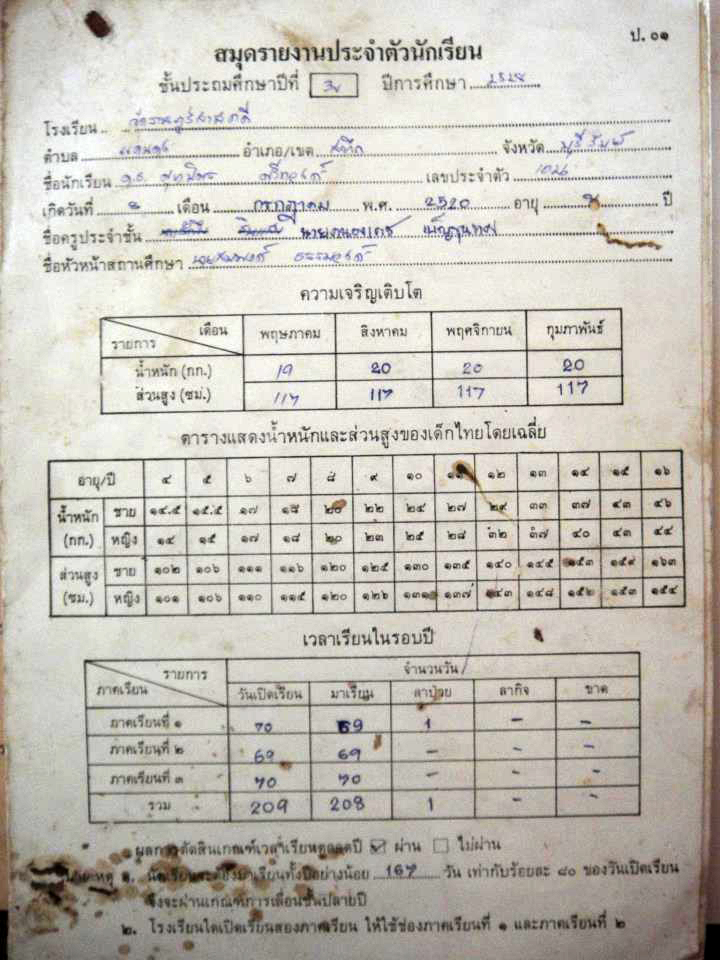 ป. ๐๑
สมุดรายงานประจำตัวนักเรียน
ชั้นประถมศึกษาปีที่ ปีการศึกษา ๒๕๒๘
โรงเรียน
ตำบล อำเภอ/เขต สตึก จังหวัด บุรีรัมย์
ชื่อนักเรียน เลขประจำตัว
เกิดวันที่ ๘ เดือน กรกฎาคม พ.ศ. 2520 อายุ ๘ ปี
ชื่อครูประจำชั้น
ชื่อหัวหน้าสถานศึกษา
ความเจริญเติบโต
รายการ เดือน พฤษภาคม สิงหาคม พฤศจิกายน กุมภาพันธ์
น้ำหนัก (กก.) 19 20 20 20
ส่วนสูง (ซม.) 117 117 117 117
ตารางแสดงน้ำหนักและส่วนสูงของเด็กไทยโดยเฉลี่ย
อายุ/ปี ๔ ๕ ๖ ๗ ๘ ๙ ๑๐ ๑๑ ๑๒ ๑๓ ๑๔ ๑๕ ๑๖
น้ำหนัก (กก.) ชาย ๑๔.๕ ๑๕.๕ ๑๗ ๑๘ ๒๐ ๒๒ ๒๔ ๒๗ ๒๙ ๓๓ ๓๗ ๔๓ ๔๖
หญิง ๑๔ ๑๕ ๑๗ ๑๘ ๒๐ ๒๓ ๒๕ ๒๘ ๓๒ ๓๗ ๔๐ ๔๓ ๔๔
ส่วนสูง (ซม.) ชาย ๑๐๒ ๑๐๖ ๑๑๑ ๑๑๖ ๑๒๐ ๑๒๕ ๑๓๐ ๑๓๕ ๑๔๐ ๑๔๕ ๑๕๓ ๑๕๙ ๑๖๓
หญิง ๑๐๑ ๑๐๖ ๑๑๐ ๑๑๕ ๑๒๐ ๑๒๖ ๑๓๑ ๑๓๗ ๑๔๓ ๑๔๘ ๑๕๒ ๑๕๓ ๑๕๔
เวลาเรียนในรอบปี
รายการ จำนวนวัน
ภาคเรียน วันเปิดเรียน มาเรียน ลาป่วย ลากิจ ขาด
ภาคเรียนที่ ๑ 70 69 1 - -
ภาคเรียนที่ ๒ 69 69 - - -
ภาคเรียนที่ ๓ 70 70 - - -
รวม 209 208 1 - -
ผลการตัดสินเกณฑ์เวลาเรียนตลอดปี ☑ ผ่าน ☐ ไม่ผ่าน
หมายเหตุ ๑. นักเรียนจะต้องมาเรียนทั้งปีอย่างน้อย 167 วัน เท่ากับร้อยละ ๘๐ ของวันเปิดเรียน
จึงจะผ่านเกณฑ์การเลื่อนชั้นปลายปี
๒. โรงเรียนใดเปิดเรียนสองภาคเรียน ให้ใช้ช่องภาคเรียนที่ ๑ และภาคเรียนที่ ๒